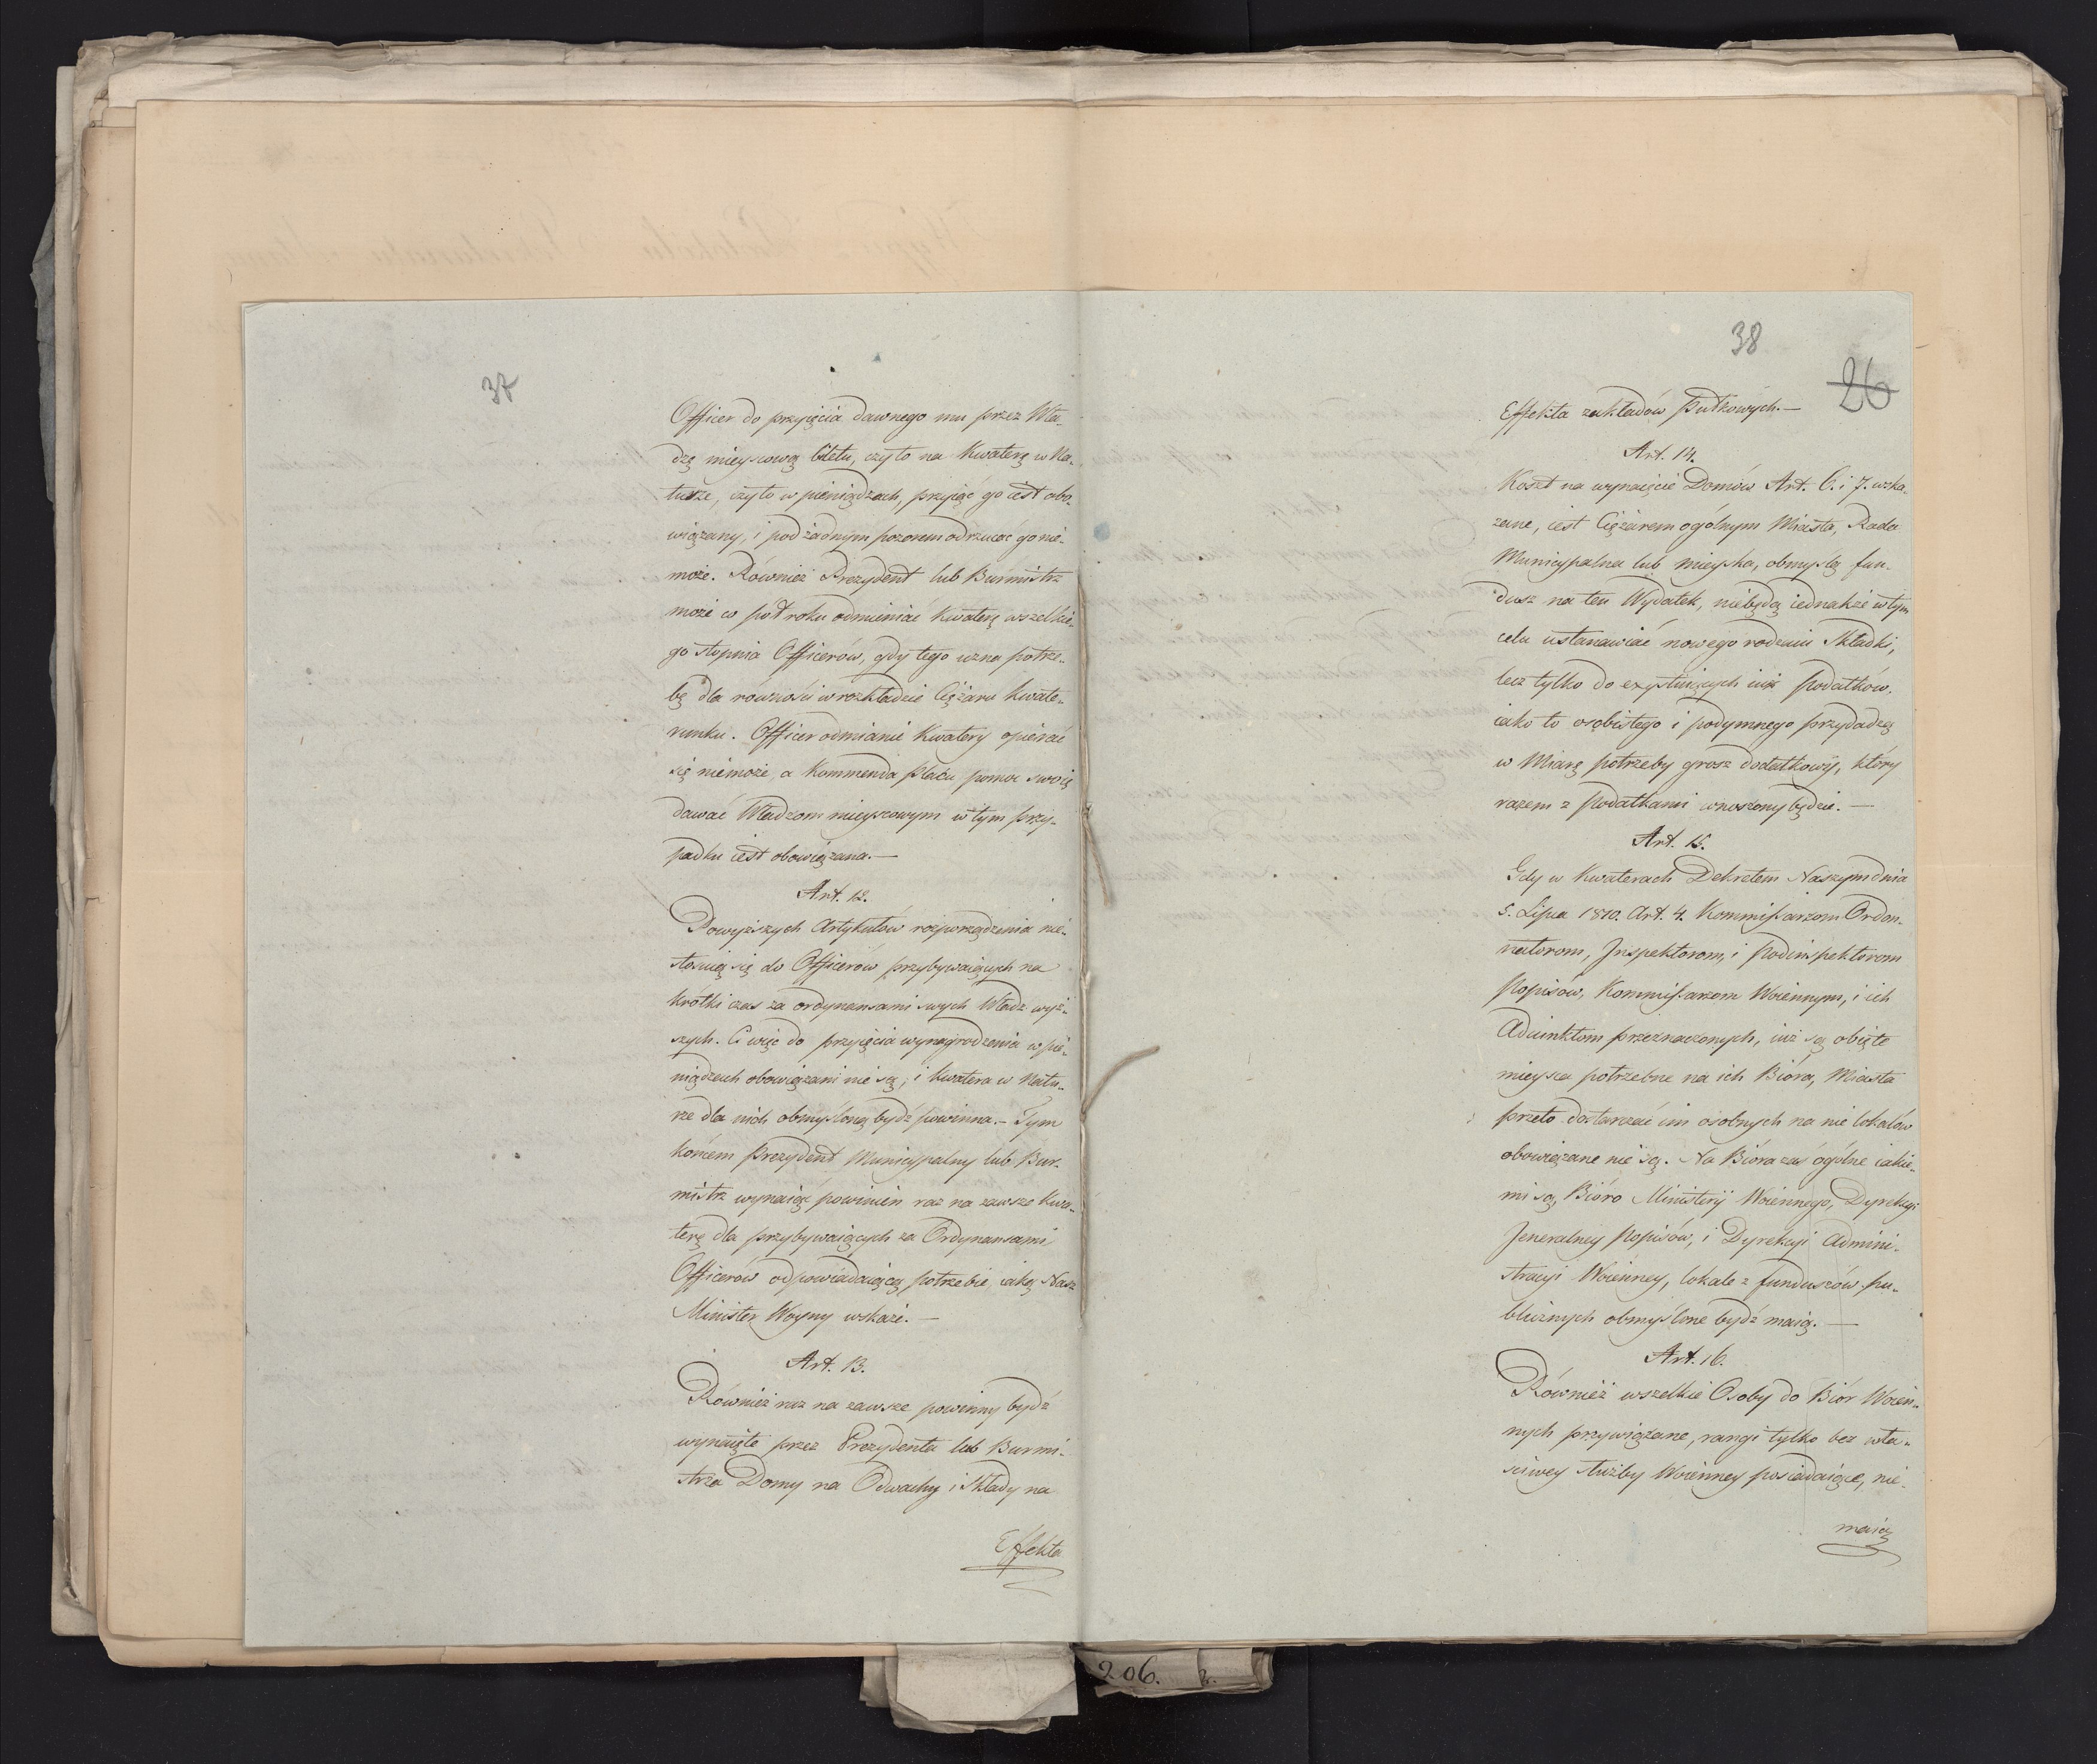 37
Officer do przyięcia dawnego mu przez Wła-
dzę mieyscową biletu, czyto na Kwaterę w Na-
turze, czyto w pieniądzach, przyiąć go iest obo-
wiązany, i pod żadnym pozorem odrzucać go nie-
może. Również Prezydent lub Burmistrz
może co pół roku odmieniać kwaterę wszelkie-
go stopnia Officerów, gdy tego uzna potrze-
bę dla równości w rozkładzie Ciężaru kwate-
runku. Officer odmianie Kwatery opierać
się niemoże, a Kommenda placu pomoc swoię
dawać Władzom mieyscowym w tym przy-
padku iest obowiązana.—
Art. 12.
Powyższych Artykułów rozporządzenia nie-
stosuią się do Officerów przybywaiących na
krótki czas za ordynansami swych Władz wyż-
szych. Ci więc do przyięcia wynagrodzenia w pie-
niądzach obowiązani nie są, i kwatera w Natu-
rze dla nich obmyśloną bydź powinna.— Tym
końcem Prezydent Municypalny lub Bur-
mistrz wynaiąć powinien raz na zawsze Kwa-
terę dla przybywaiących za Ordynansami
Officerów odpowiadaiącą potrzebie, iaką Nasz
Minister Woyny wskaże.—
Art. 13.
Również raz na zawsze powinny bydź
wynaięte przez Prezydenta lub Burmi-
strza Domy na Odwachy i Składy na
Effekta
38
26
Effekta zakładów Pułkowych.—
Art. 14.
Koszt na wynaięcie Domów Art. 6. i 7. wska-
zane, iest Ciężarem ogólnym Miasta, Rada
Municypalna lub mieyska, obmyślą fun-
dusz na ten Wydatek, niebędą iednakże w tym
celu ustanawiać nowego rodzaiu Składki,
lecz tylko do exystuiących iuż Podatków,
iako to osobistego i podymnego przydadzą
w Miarę potrzeby grosz dodatkowy, który
razem z Podatkami wnoszony będzie.—
Art. 15.
Gdy w Kwaterach Dekretem Naszym dnia
5. Lipca 1810. Art. 4. Kommissarzom Ordon-
natorom, Inspektorom, i Podinspektorom
Popisów, Kommissarzom Woiennym, i ich
Adiunktom przeznaczonych, iuż są obięte
mieysca potrzebne na ich Bióra, Miasta
przeto dostarczać im osobnych na nie lokalów
obowiązane nie są. Na Bióra zaś ogólne iakie-
mi są, Bióro Ministerij Woiennego, Dyrekcyi
Jeneralney Popisów, i Dyrekcyi Admini-
stracyi Woienney, lokale z funduszów pu-
blicznych obmyślone bydź maią.—
Art. 16.
Również wszelkie Osoby do Biór Woien-
nych przywiązane, rangi tylko bez wła-
ściwey służby Woienney posiadaiące, nie-
maią
206.